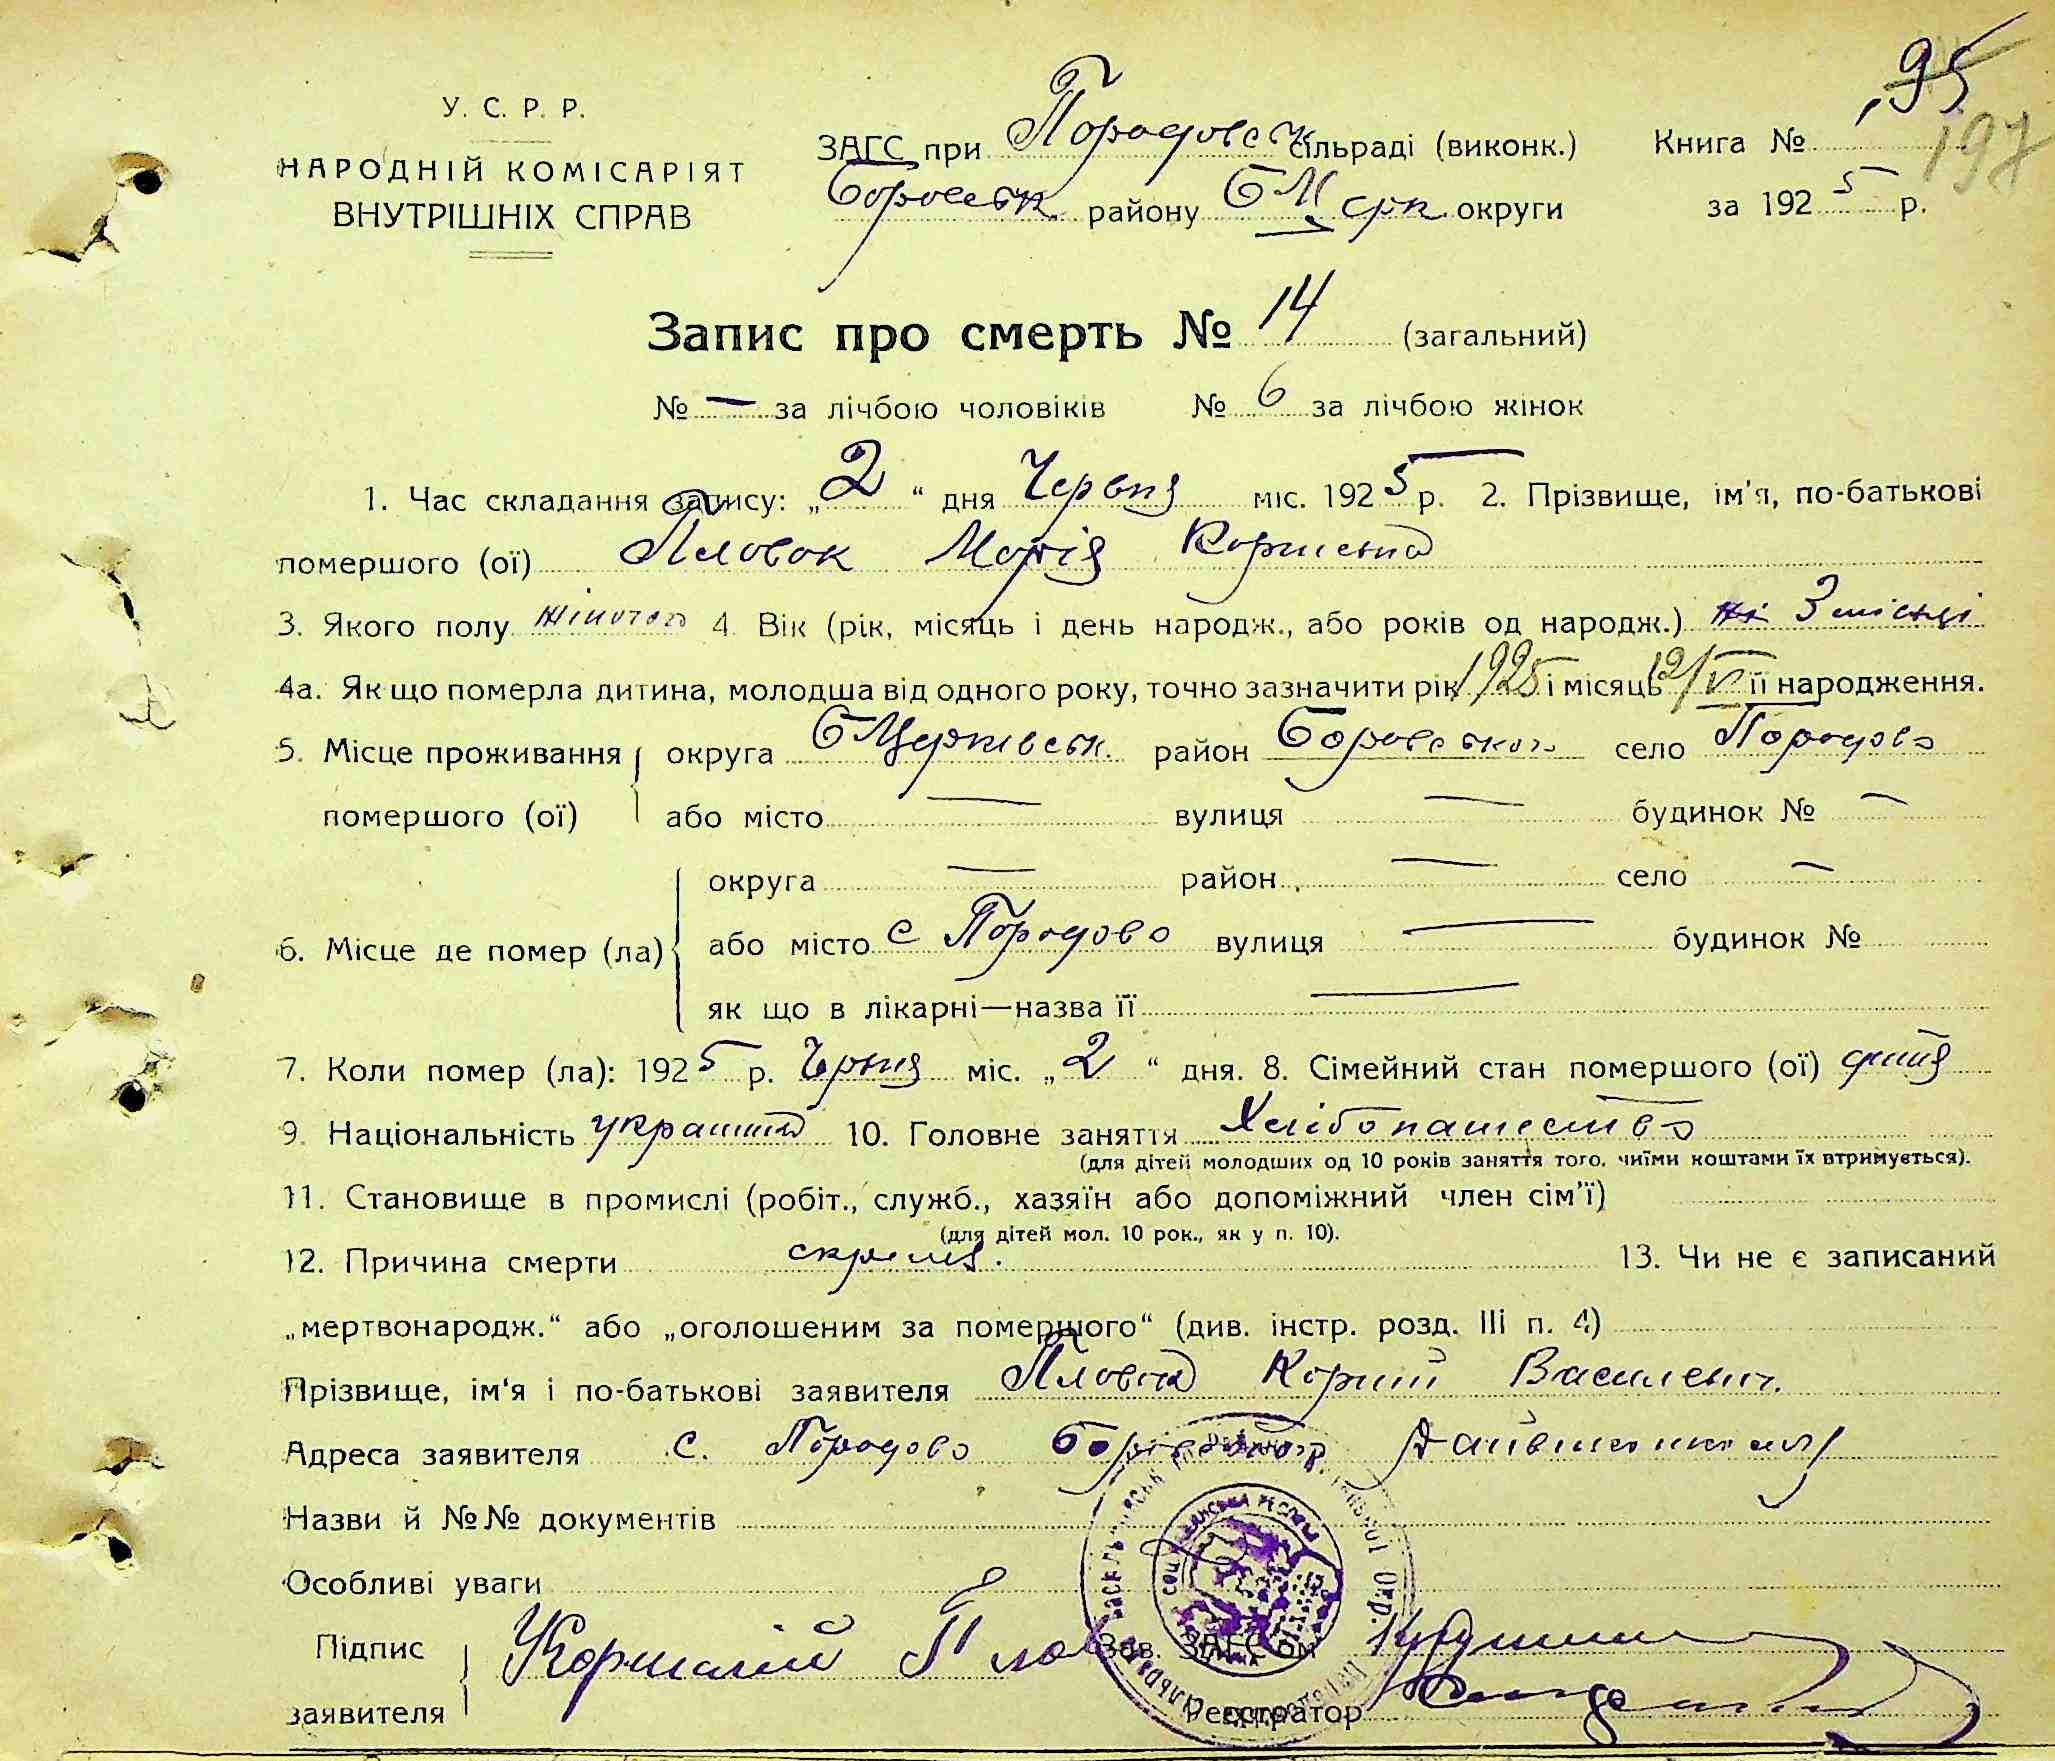 У. С. Р. Р.
НАРОДНІЙ КОМІСАРІЯТ
ВНУТРІШНІХ СПРАВ
ЗАГС при Порадовськ сільраді (виконк.)
району БЦ срк округи
Книга № 95
197
за 1925 р.
Запис про смерть № 14 (загальний)
№ — за лічбою чоловіків № 6 за лічбою жінок
1. Час складання запису: „2“ дня Червня міс. 1925 р. 2. Прізвище, ім'я, по-батькові
помершого (ої) Марія
3. Якого полу жіночого 4. Вік (рік, місяць і день народж., або років од народж.) 3 місяці
4а. Як що померла дитина, молодша від одного року, точно зазначити рік 1925 і місяць її народження.
5. Місце проживання помершого (ої) округа БЦерківськ. район село Порадово
або місто — вулиця — будинок № —
6. Місце де помер (ла) округа — район — село —
або місто с Порадово вулиця — будинок №
як що в лікарні—назва її —
7. Коли помер (ла): 1925 р. Червня міс. „2“ дня. 8. Сімейний стан помершого (ої) дитя
9. Національність 10. Головне заняття Хлібопашество
(для дітей молодших од 10 років заняття того, чиїми коштами їх втримується).
11. Становище в промислі (робіт., служб., хазяїн або допоміжний член сім'ї)
(для дітей мол. 10 рок., як у п. 10).
12. Причина смерти 13. Чи не є записаний
„мертвонародж.“ або „оголошеним за помершого“ (див. інстр. розд. III п. 4)
Прізвище, ім'я і по-батькові заявителя Корній Василевич
Адреса заявителя с. Порадово
Назви й №№ документів
Особливі уваги
Підпис заявителя
Зав. ЗАГС'ом
Реєстратор